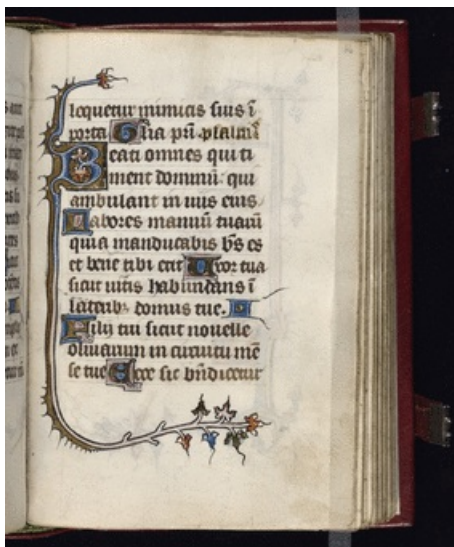 loquetur inimicis suis ī
porta Gl̄ia pr̄i psalmꝰ
Beati omnes qui ti
ment dominū qui
ambulant in uiis eius
Labores manuū tuarū
quia manducabis b̄s es
et bene tibi erit Uxor tua
sicut uitis habundans ī
laterib; domus tue.
Filij tui sicut nouelle
oliuarum in circuitu mē
se tue Ecce sic bn̄dicetur